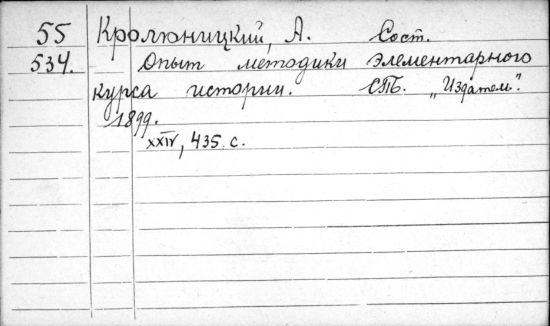 55 Кролюницкий, А. Сост.
534. Опыт методики элементарного
курса истории. СПб. "Издатель".
1899.
XXIV, 435 с.